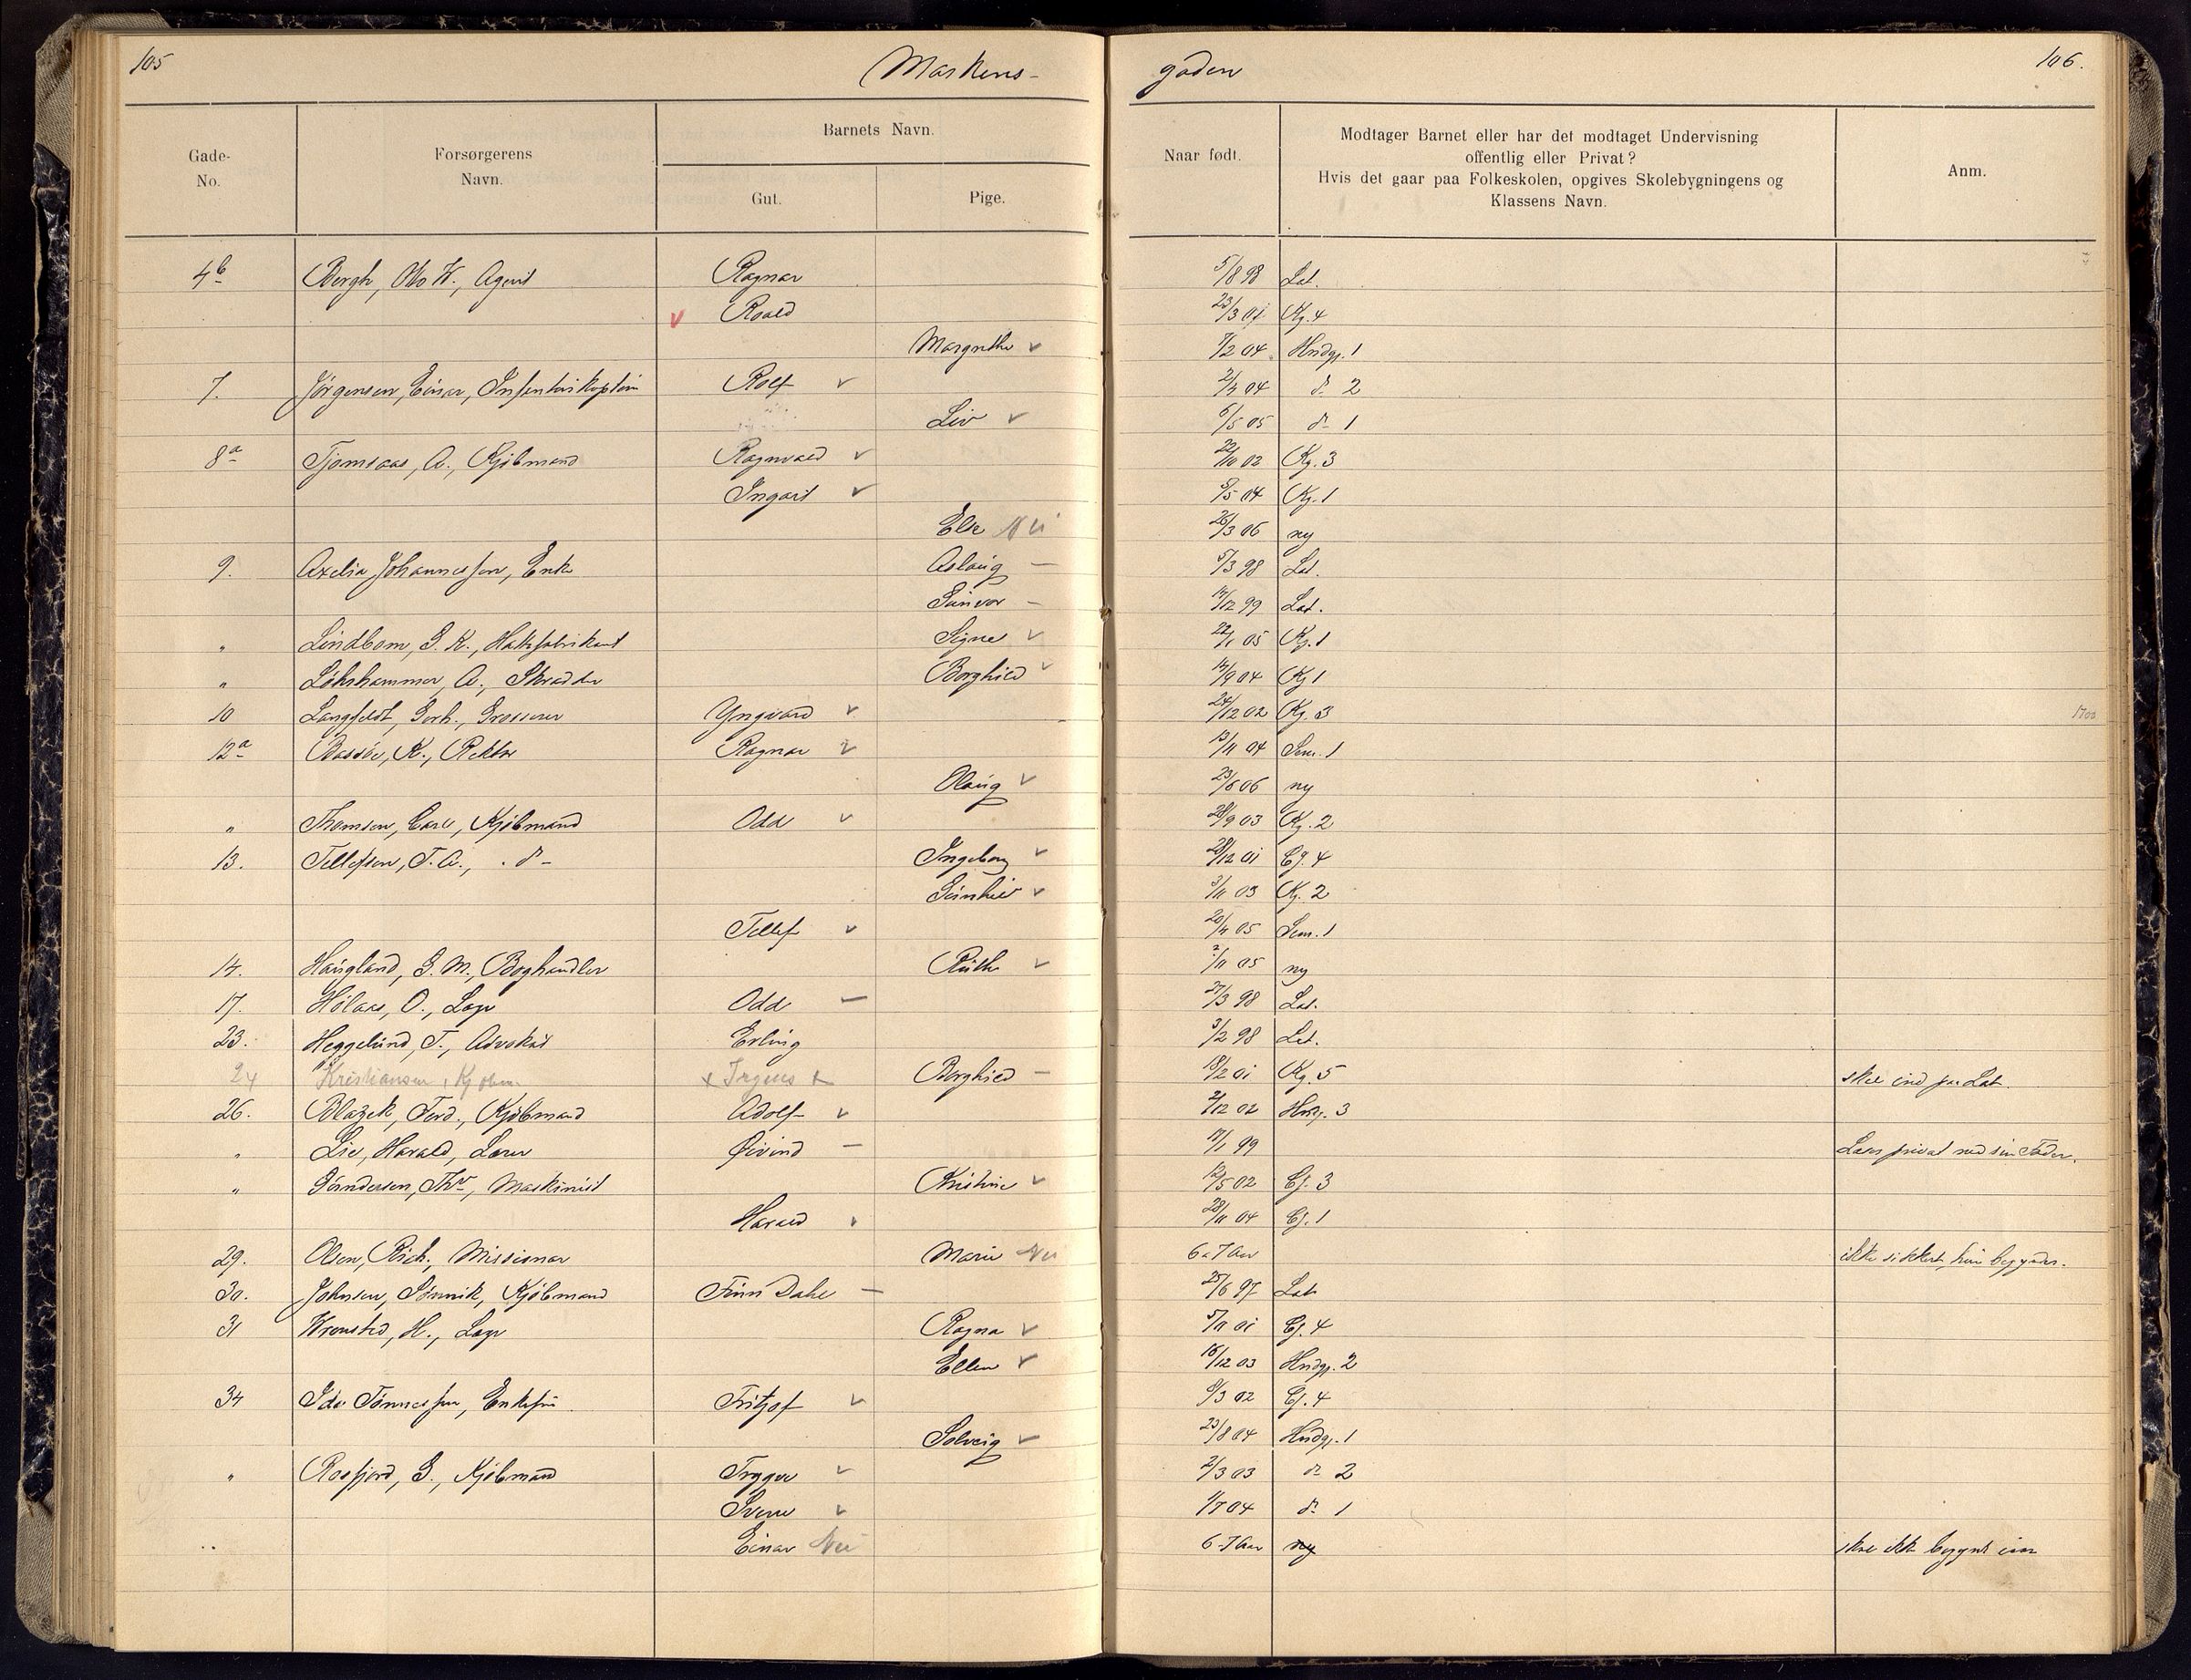 105 Markens- gaden 106.
Gade-No. Forsørgerens Navn. Barnets Navn. Gut. Pige. Naar født. Modtager Barnet eller har det modtaget Undervisning offentlig eller Privat? Hvis det gaar paa Folkeskolen, opgives Skolebygningens og Klassens Navn. Anm.
4b Bergh, Otto W., Agent Ragnar 5/8 98 Lat.
v Roald 23/3 01 Kg. 4
Margrethe v 7/2 04 Hndg. 1
7. Jørgensen, Einar, Infanterikaptein Rolf v 2/4 04 do 2
Liv v 6/5 05 do 1
8a Tjomsaas, A., Kjøbmand Ragnvald v 22/10 02 Kg. 3
Ingard v 5/5 04 Kg. 1
Else Nei 26/3 06 ny
9. Axelia Johannessen, Enke Aslaug — 5/3 98 Lat.
Gunvor - 14/12 99 Lat.
" Lindbom, G. K., Hattefabrikant Signe v 22/1 05 Kg. 1
" Løkhammer, A., Skrædder Borghild v 14/9 04 Kg 1
10 Langfeldt, Gerh., Grosserer Yngvard v 24/12 02 Kg. 3
12a Bassøe, K., Rektor Ragnar v 13/11 04 Sem. 1
Olaug v 23/6 06 ny
" Thomsen, Carl, Kjøbmand Odd v 28/9 03 Kg. 2
13. Tellefsen, T. A., do- Ingeborg v 28/12 01 Cg. 4
Gunhild v 3/11 03 Kg. 2
Tellef v 20/4 05 Sem. 1
14. Haugland, G. M., Boghandler Ruth v 2/11 05 ny
17. Hølaas, O., Læge Odd — 27/3 98 Lat.
23. Heggelund, T., Advokat Erling 3/2 98 Lat.
24 Kristiansen, Kjøbm. x Trygves x Borghild — 18/2 01 Kg. 5 skal ind paa Lat.
26. Blazek, Ferd., Kjøbmand Adolf v 2/12 02 Hndg. 3
" Lie, Harald, Lærer Øivind — 17/1 99 Læses privat med sin Fader.
" Gundersen, Thv, Maskinist Kristine v 12/5 02 Cg. 3
Harald v 28/11 04 Cg. 1
29. Olsen, Rich., Missionær Marie Nei 6-7 Aar ikke sikkert, hun begynder.
30. Johnsen, Sønnik, Kjøbmand Finn Dahl — 25/6 97 Lat
31 Wrensted, H., Læge Ragna v 5/11 01 Cg. 4
Ellen v 16/12 03 Hndg. 2
34 Ida Tønnessen, Enkefru Fritjof v 8/3 02 Cg. 4
Solveig v 23/8 04 Hndg. 1
" Rosfjord, G., Kjøbmand Trygve v 2/3 03 do 2
Sverre v 1/7 04 do 1
Einar Nei 6-7 Aar ny skal ikke begynde iaar